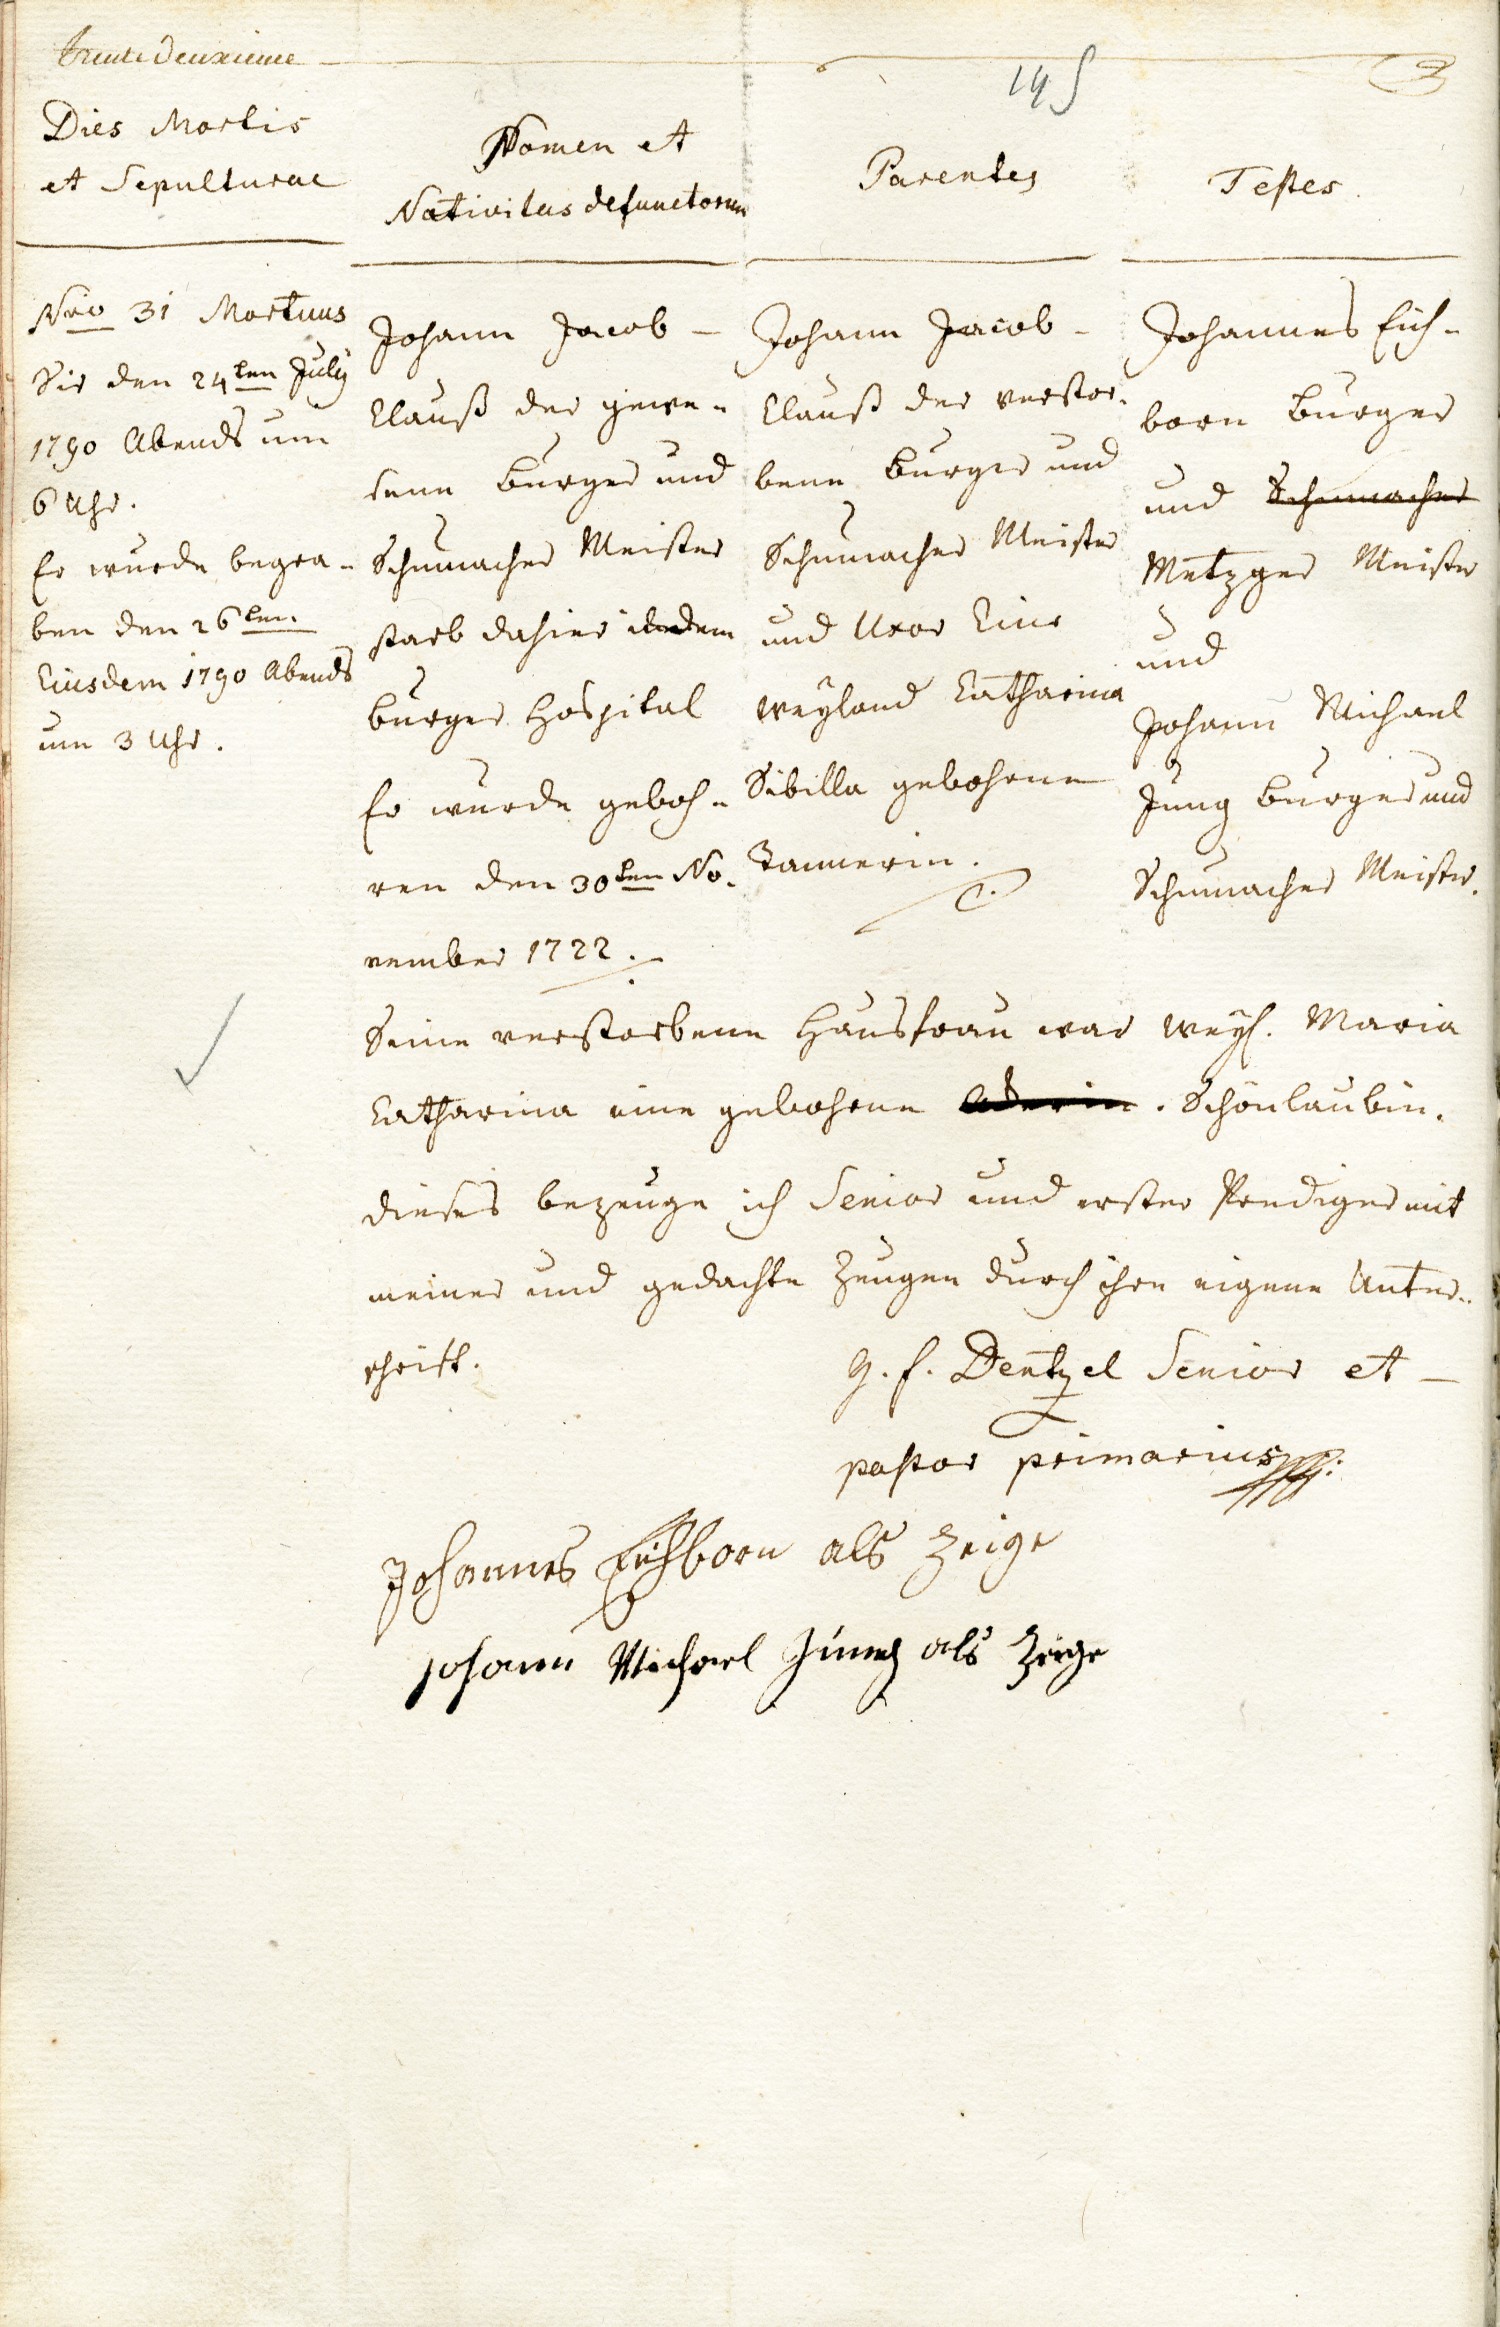 trente deuxieme
145
Dies Mortis
et Sepulturae
Nomen et
Nativitas defunctorum
Parentes
Testes.
Nro 31 Mortuus
Hir den 24ten July
1790 Abends um
6 Uhr.
Er wurde begra-
ben den 26ten
Eiusdem 1790 Abends
um 3 Uhr.
Johann Jacob –
Clauß der gewe-
sene Burger und
Schumacher Meister
starb dahier in dem
Burger Hospital
Er wurde geboh-
ren den 30ten No-
vember 1722.
Johann Jacob –
Clauß der verstor-
bene Burger und
Schumacher Meister
und Uxor Eius
weyland Catharina
Sibilla gebohrene
Tannerin.
Johannes Eich-
born Burger
und Schumacher
Metzger Meister
und
Johann Michael
Jung Burger und
Schumacher Meister.
Seine verstorbene Hausfrau war weyl. Maria
Catharina eine gebohrene . Schönlaubin.
dieses bezeuge ich Senior und erster Prediger mit
meiner und gedachte Zeugen durch ihre eigene Unter-
schrift.
G. F. Dentzel Senior et –
pastor primarius
Johannes Eichborn als Zeige
Johann Michael Jung als Zeige